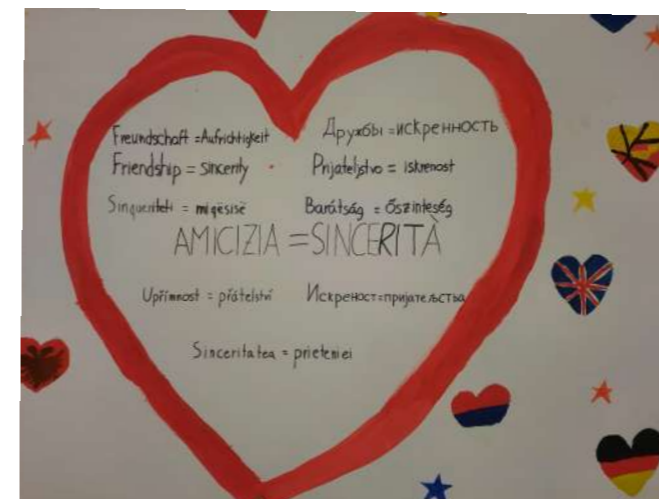 Freundschaft = Aufrichtigkeit
Дружбы = искренность
Friendship = sincerity
Prijateljstvo = iskrenost
Sinqueriteti = miqësisë
Barátság = Őszinteség
AMICIZIA = SINCERITÀ
Upřímnost = přátelství
Искреност = пријатељства
Sinceritatea = prieteniei